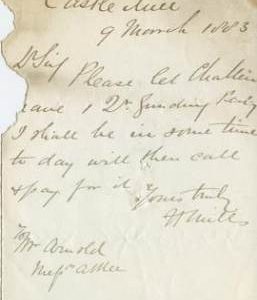 Castle Mill
9 March 1883
Dr Sir
Please let Challin
have 1 Dr. Grinding
I shall be in some time
to day will then call
& pay for it
Yours truly
To
Mr Arnold
Messrs